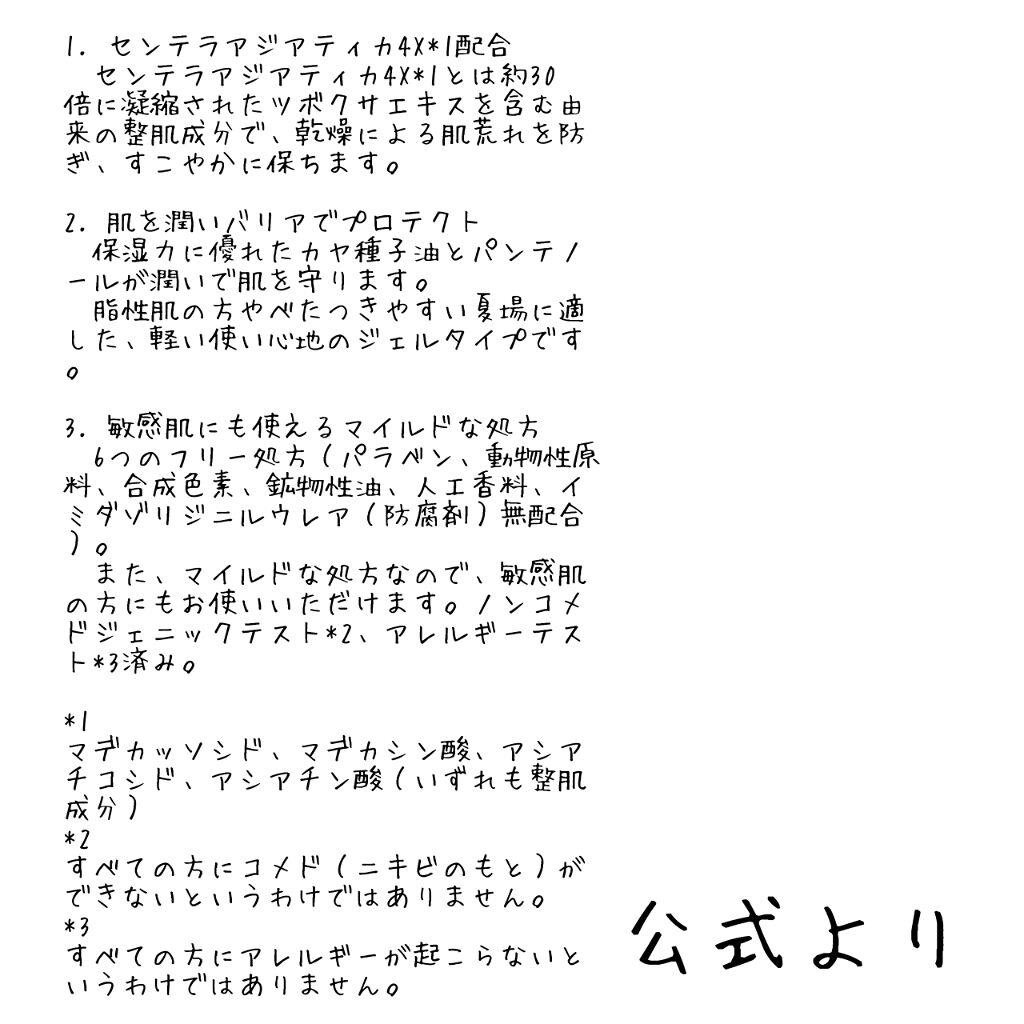 1. センテラアジアティカ4X*1配合
　センテラアジアティカ4X*1とは約30
倍に凝縮されたツボクサエキスを含む由
来の整肌成分で、乾燥による肌荒れを防
ぎ、すこやかに保ちます。
2. 肌を潤いバリアでプロテクト
　保湿力に優れたカヤ種子油とパンテノ
ールが潤いで肌を守ります。
　脂性肌の方やべたつきやすい夏場に適
した、軽い使い心地のジェルタイプです
。
3. 敏感肌にも使えるマイルドな処方
　6つのフリー処方（パラベン、動物性原
料、合成色素、鉱物性油、人工香料、イ
ミダゾリジニルウレア（防腐剤）無配合
）。
　また、マイルドな処方なので、敏感肌
の方にもお使いいただけます。ノンコメ
ドジェニックテスト*2、アレルギーテス
ト*3済み。
*1
マデカッソシド、マデカシン酸、アシア
チコシド、アシアチン酸（いずれも整肌
成分）
*2
すべての方にコメド（ニキビのもと）が
できないというわけではありません。
*3
すべての方にアレルギーが起こらないと
いうわけではありません。
公式より